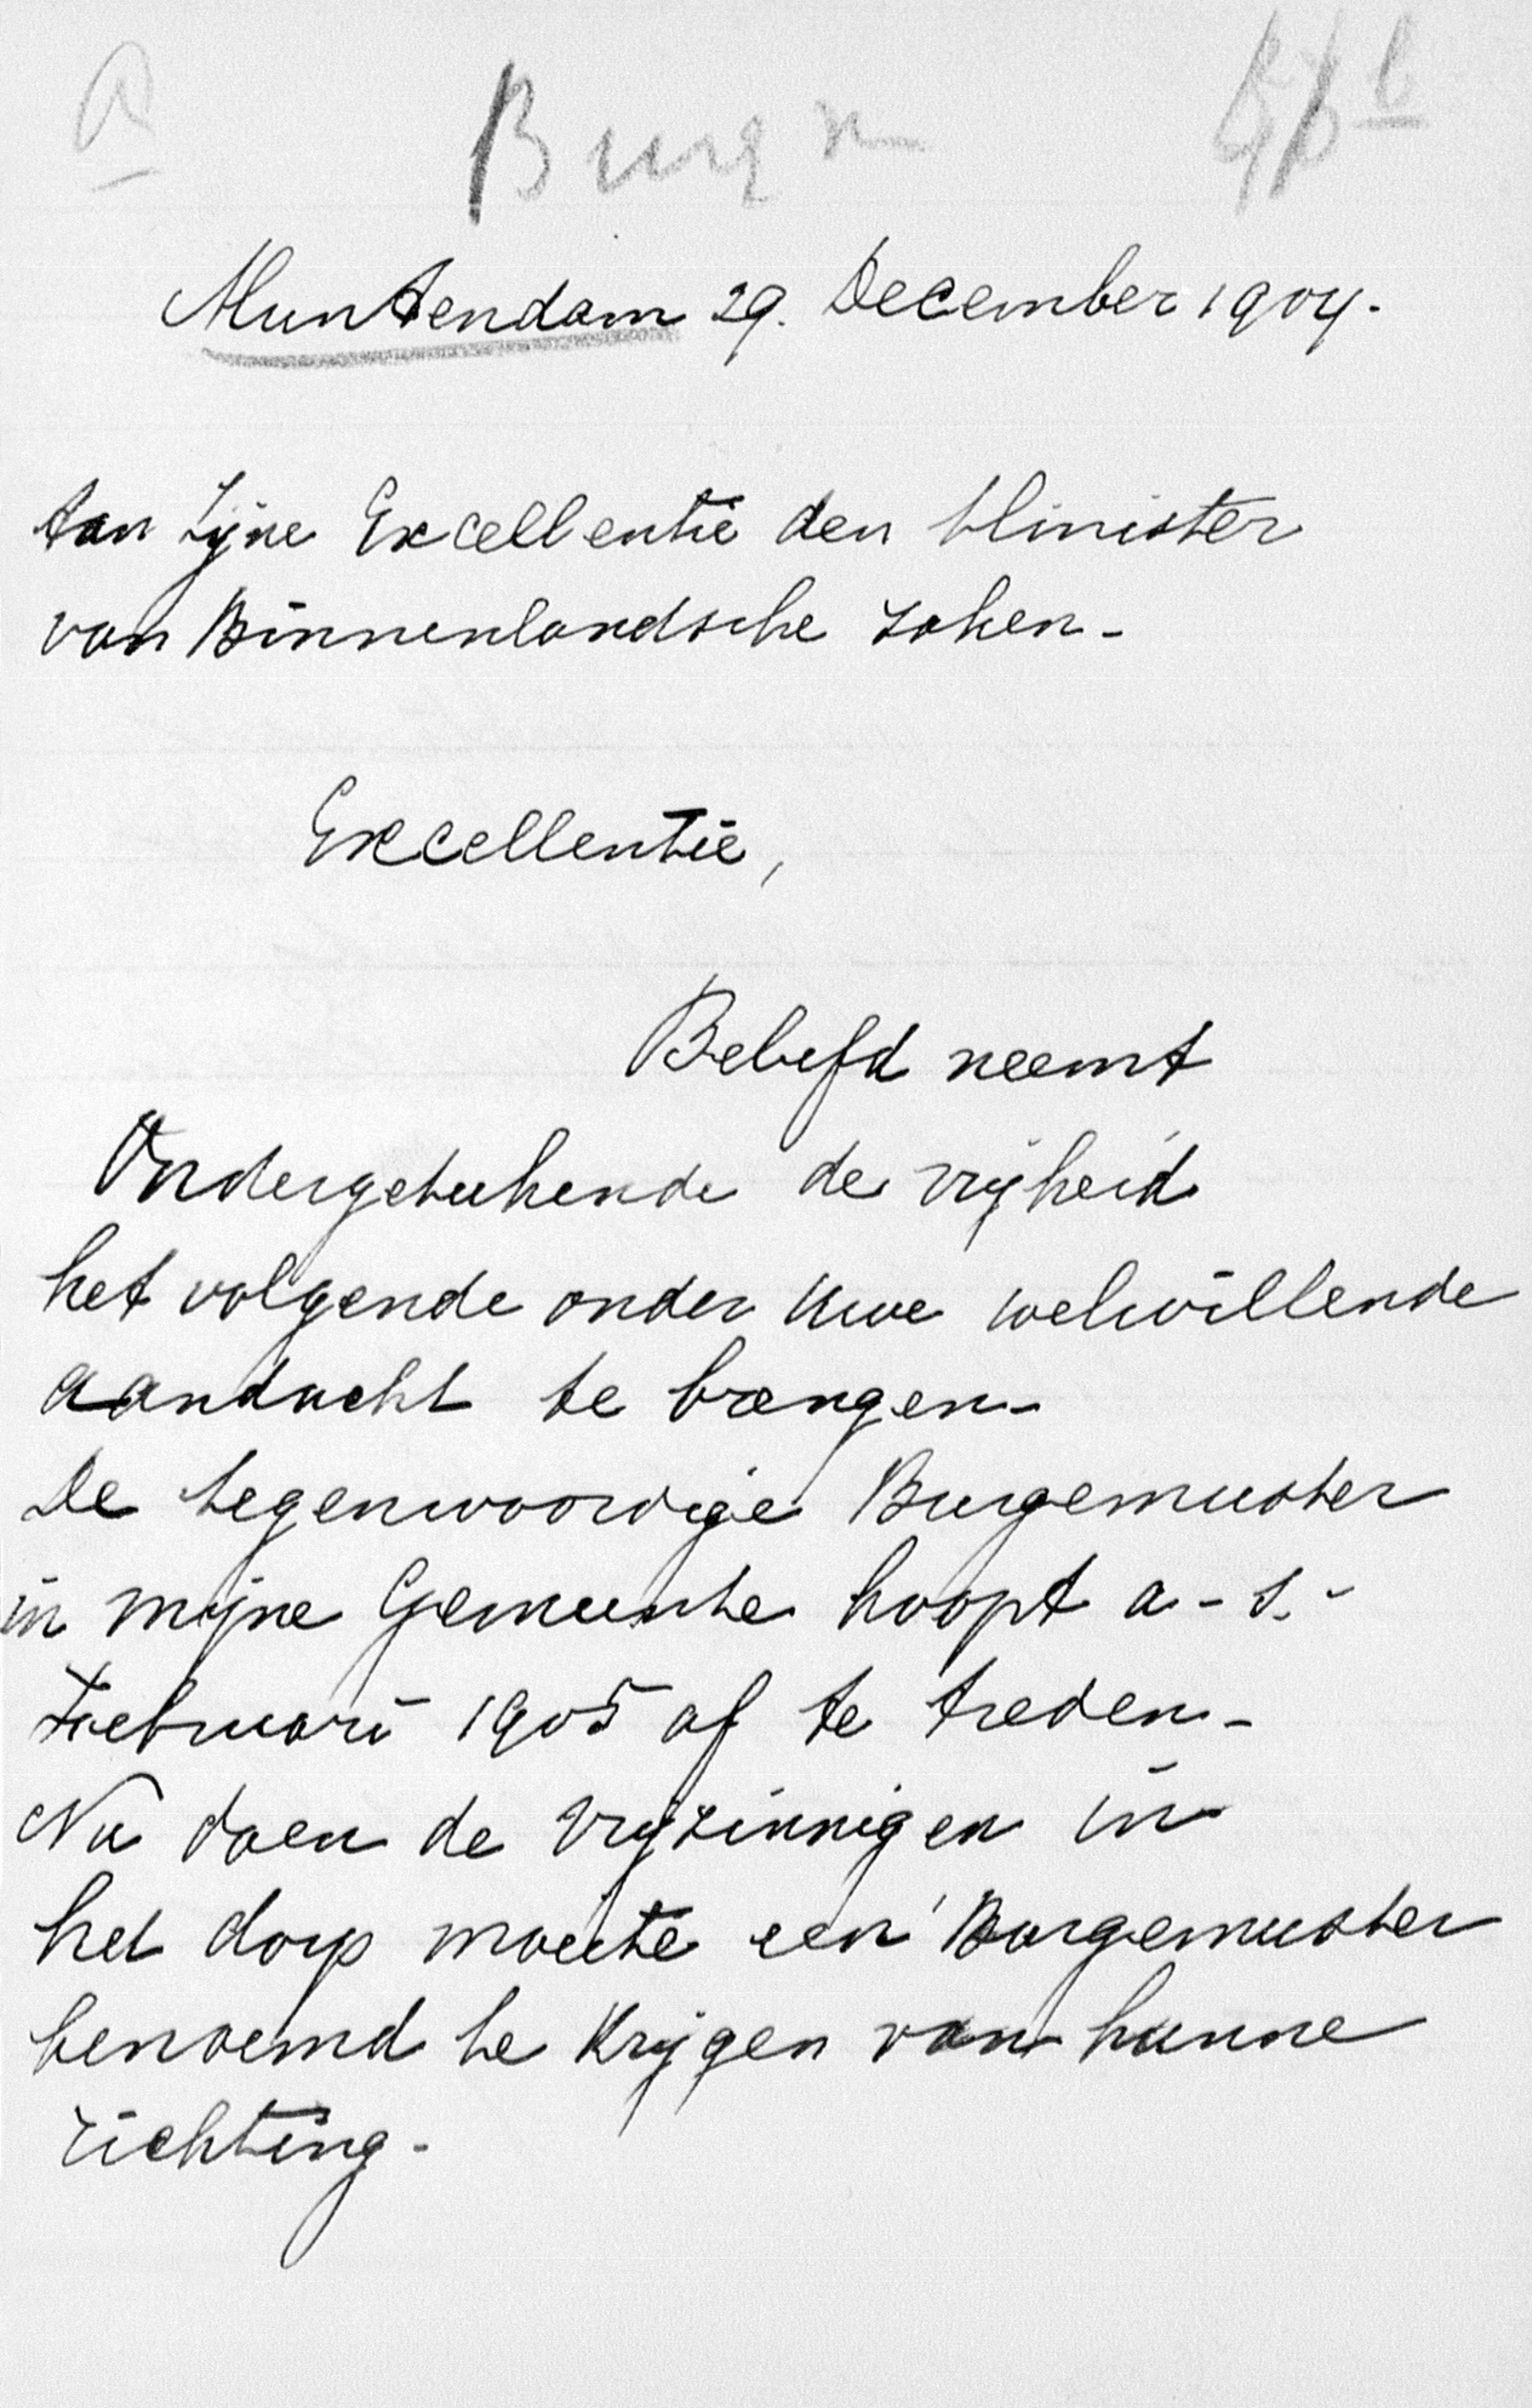 a Burg n
Muntendam 29. December 1904.
Aan Zijne Excellentie den Minister
van Binnenlandsche Zaken -
Excellentie,
Beleefd neemt
Ondergeteekende de vrijheid
het volgende onder Uwe welwillende
aandacht te brengen -
De tegenwoordige Burgemeester
in mijne Gemeente hoopt a - s. -
Februari 1905 af te treden -
Nu doen de Vrijzinnigen in
het dorp moeite een Burgemeester
benoemd te krijgen van hunne
richting -